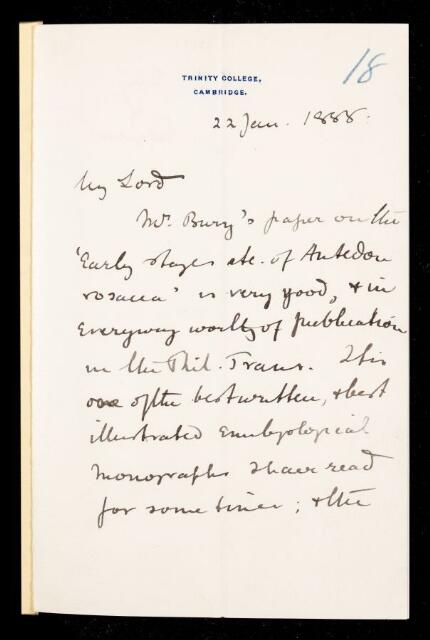 18
TRINITY COLLEGE,
CAMBRIDGE.
22 Jan. 1888.
My Lord
Mr. Bury's paper on the
'Early stages etc. of Antedon
rosacea' is very good, & in
everyway worthy of publication
in the Phil. Trans. It is
one of the best written, & best
illustrated Embryological
Monographs I have read
for some time; & the